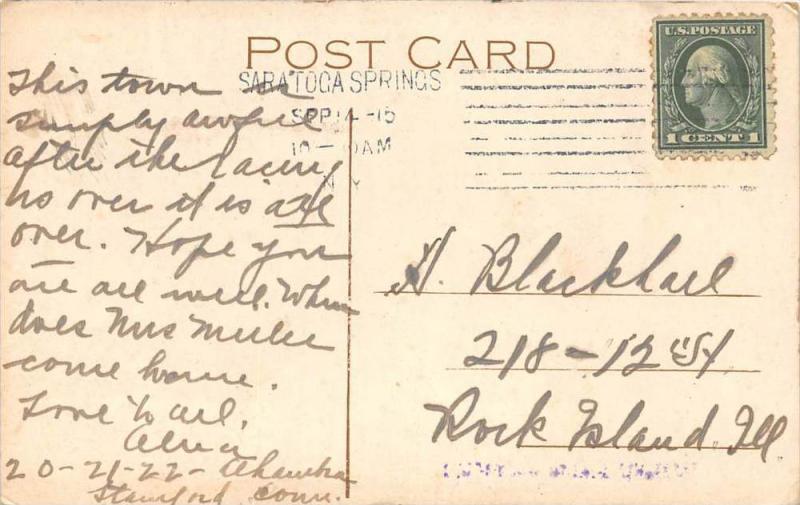 POST CARD
U.S. POSTAGE
1 CENT 1
SARATOGA SPRINGS
SEP 14 - 15
10 - AM
N.Y.
This town
simply awful
after the racing
is over it is all
over. Hope you
are all well. When
does Mrs
come home.
Love to all.
20-21-22-
Stamford Conn.
H. Blackhall
218 - 12 St
Rock Island Ill